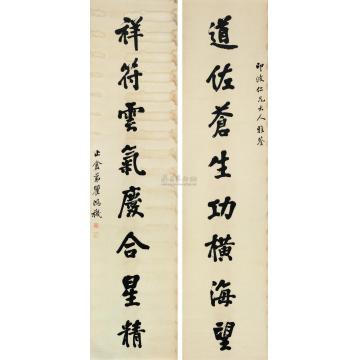 道佐蒼生功橫海望
印波仁兄大人雅鑒
祥符雲氣慶合星精
止盦弟瞿鴻禨